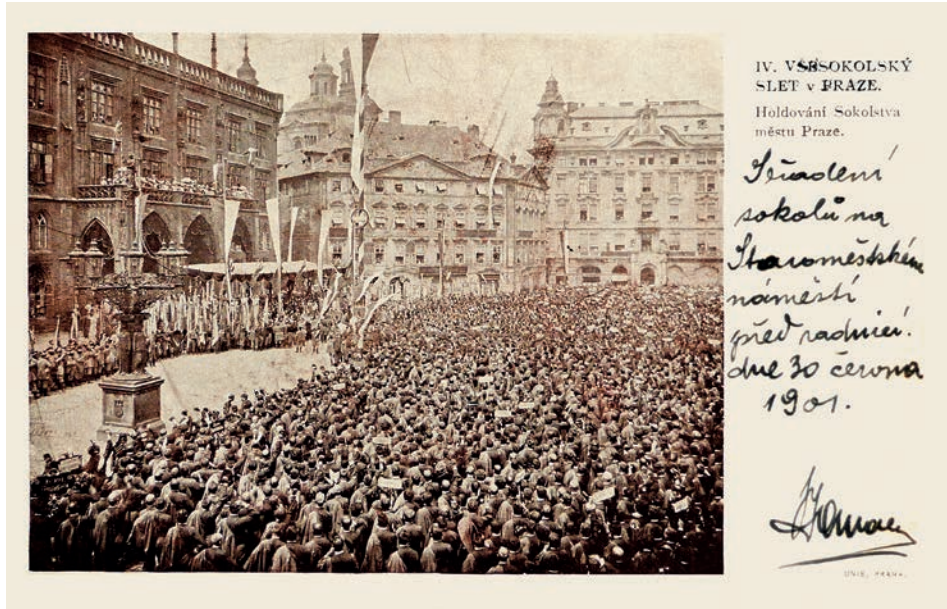 IV. VŠESOKOLSKÝ
SLET v PRAZE.
Holdování Sokolstva
městu Praze.
Seřadění
sokolů na
Staroměstském
náměstí
před radnicí.
dne 30 června
1901.
UNIE, PRAHA.